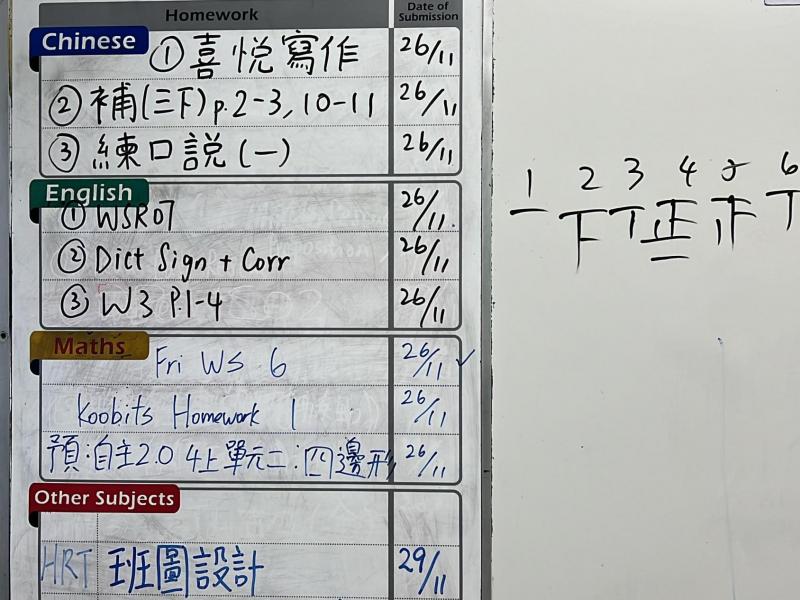 Homework Date of Submission
Chinese ①喜悅寫作 26/11
②補(三下)p.2-3, 10-11 26/11
③練口說(一) 26/11
English
①WSR07 26/11
②Dict Sign + Corr 26/11
③W3 P.1-4 26/11
Maths Fri WS 6 26/11 ✓
Koobits Homework 1 26/11
預:自主2.0 4上單元二:四邊形 26/11
Other Subjects
HRT 班圖設計 29/11
1 2 3 4 5 6